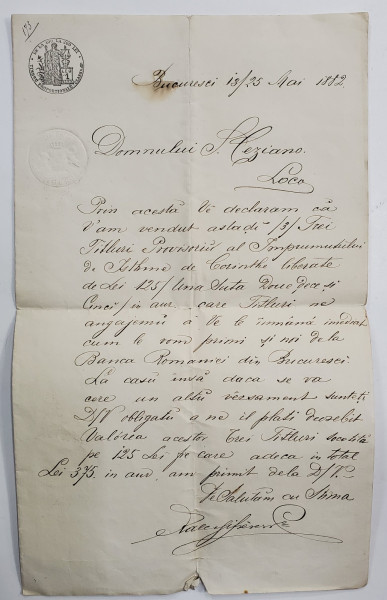 Bucuresci 13/25 Mai 1882.
Domnului S. Ceziano.
Loco
Prin acestă Vĕ declaram că
V'am vendut astadĭ /3/ Trei
Titluri Provisoriĭ al Imprumutului
de Isthme de Corinthe liberate
de Lei 125/ Una Suta Douĕ deci și
Cinci/ in aur.. care Titluri ne
angajemŭ a Ve le înmână imediat
cum le vom primi și noi de la
Banca Romaniei din Bucuresci.
La casŭ însă daca se va
cere un altŭ versament sunteți
D/V obligatŭ a ne il plati deosebit
Valórea acestor Trei Titluri socotită
pe 125 Lei fie care adeca in total
Lei 375. in aur, am primit de la D/V.
Ve Salutăm cu Stima